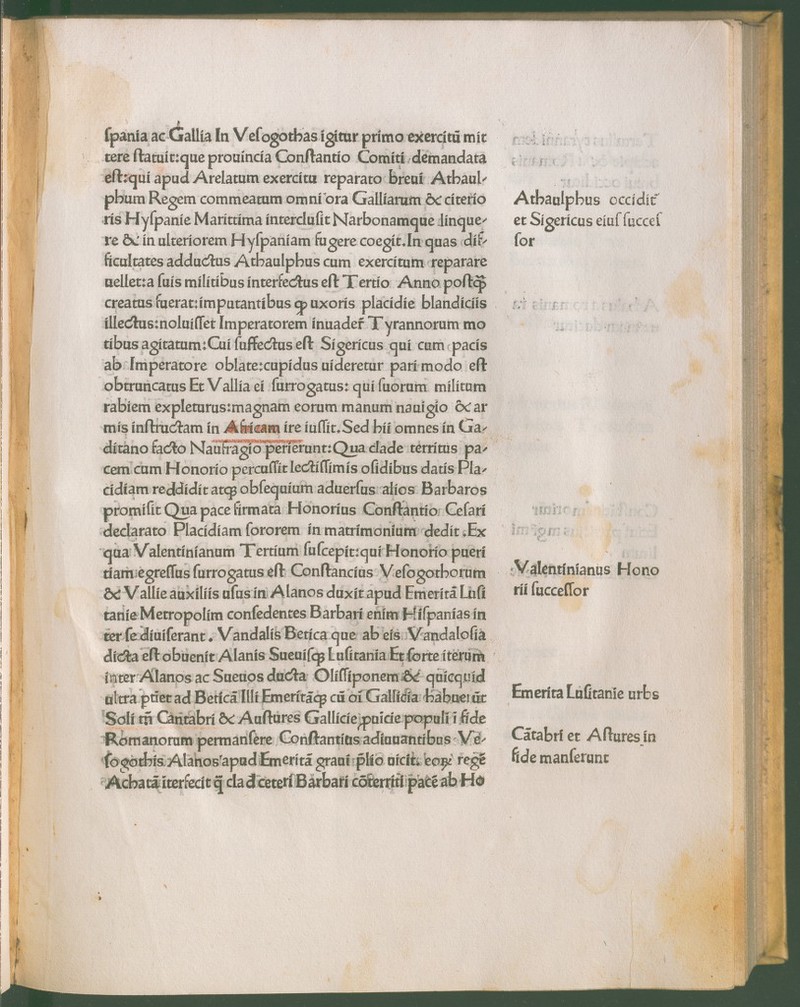 ſpania ac Gallia In Veſogothas igitur primo exercitū mit
tere ſtatuit:que prouincia Conſtantio Comiti demandata
eſt:qui apud Arelatum exercitu reparato breui Athaul-
phum Regem commeatum omni ora Galliarum & citerio
ris Hyſpanie Marittima intercluſit Narbonamque linque-
re & in ulteriorem Hyſpaniam fugere coegit.In quas dif-
ficultates adductus Athaulphus cum exercitum reparare
uellet:a ſuis militibus interfectus eſt Tertio Anno poſtꝙ̃
creatus fuerat:imputantibus ꝙ uxoris placidie blandiciis
illectus:noluiſſet Imperatorem inuader̃ Tyrannorum mo
tibus agitatum:Cui ſuffectus eſt Sigericus qui cum pacis
ab Imperatore oblate:cupidus uideretur pari modo eſt
obtruncatus Et Vallia ei ſurrogatus: qui ſuorum militum
rabiem expleturus:magnam eorum manum nauigio & ar
mis inſtructam in Africam ire iuſſit.Sed hii omnes in Ga-
ditano facto Naufragio perierunt:Qua clade territus pa-
cem cum Honorio percuſſit lectiſſimis oſidibus datis Pla-
cidiam reddidit atqꝫ obſequium aduerſus alios Barbaros
promiſit Qua pace firmata Honorius Conſtantio Ceſari
declarato Placidiam ſororem in matrimonium dedit.Ex
qua Valentinianum Tertium ſuſcepit:qui Honorio pueri
tiam egreſſus ſurrogatus eſt Conſtancius Veſogothorum
& Vallie auxiliis uſus in Alanos duxit apud Emeritā Luſi
tanie Metropolim conſedentes Barbari enim Hiſpanias in
ter ſe diuiſerant. Vandalis Betica que ab eis Vandaloſia
dicta eſt obuenit Alanis Sueuiſqꝫ Luſitania Et ſorte iterum
inter Alanos ac Sueuos ducta Oliſſiponem & quicquid
ultra p̃ter ad Beticā Illi Emeritāqꝫ cū oī Gallicia habuerūt
Soli tñ Cantabri & Auſtures Gallicie paicie populi ī fide
Romanorum permanſere Conſtantius adiuuantibus Ve-
ſogothis Alanos apud Emeritā graui p̃lio uicit. eoꝝ regē
Achatā īterfecit q̃ clađ ceteri Barbari cōterriti pacē ab Ho
Athaulphus occidit̃
et Sigericus eiuſ ſucceſ
ſor
Valentinianus Hono
rii ſucceſſor
Emerita Luſitanie urbs
Cātabri et Aſtures in
fide manſerunt